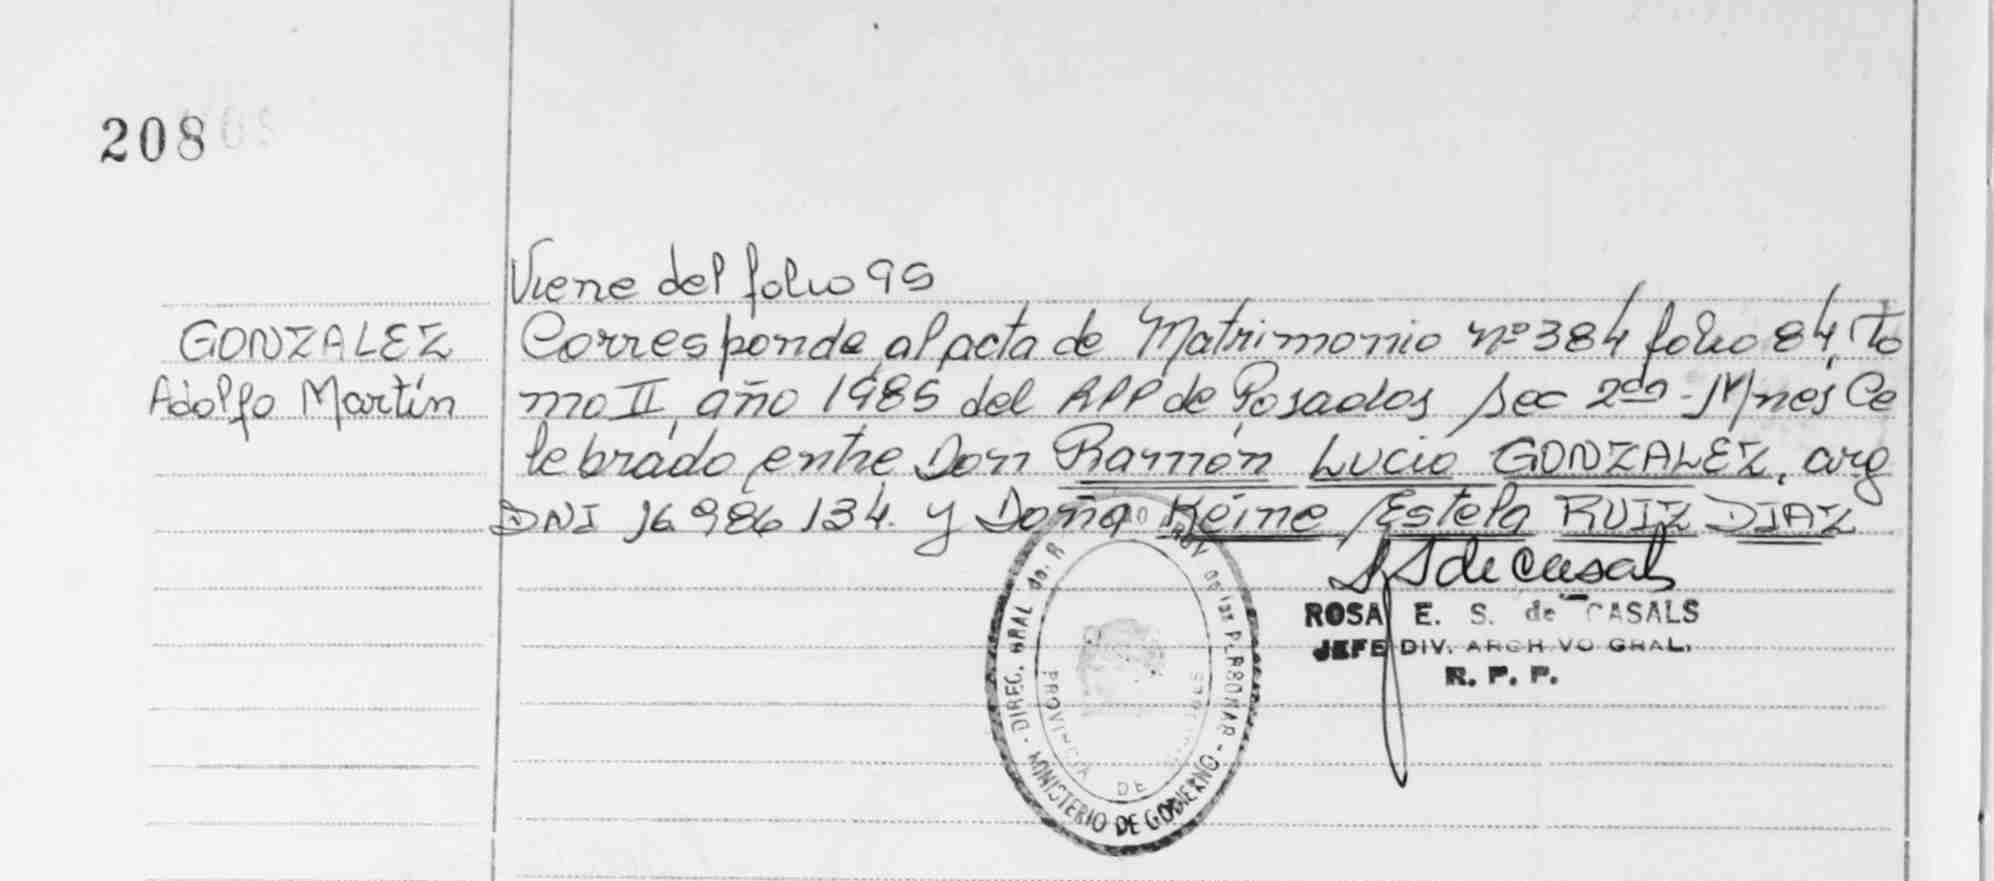 208
Viene del folio 95
GONZALEZ
Adolfo Martín
Corresponde al acta de Matrimonio nº 384 folio 84, To
mo II, año 1985 del RPP de Posadas Sec 2da - Mnes Ce
lebrado entre Don Ramón Lucio GONZALEZ, arg
DNI 16.986.134. y Doña Reine Estela RUIZ DIAZ
ROSA E. S. de CASALS
JEFE DIV. ARCHIVO GRAL.
R. P. P.
DIREC. GRAL de PERSONAS
PROVINCIA DE MISIONES
MINISTERIO DE GOBIERNO